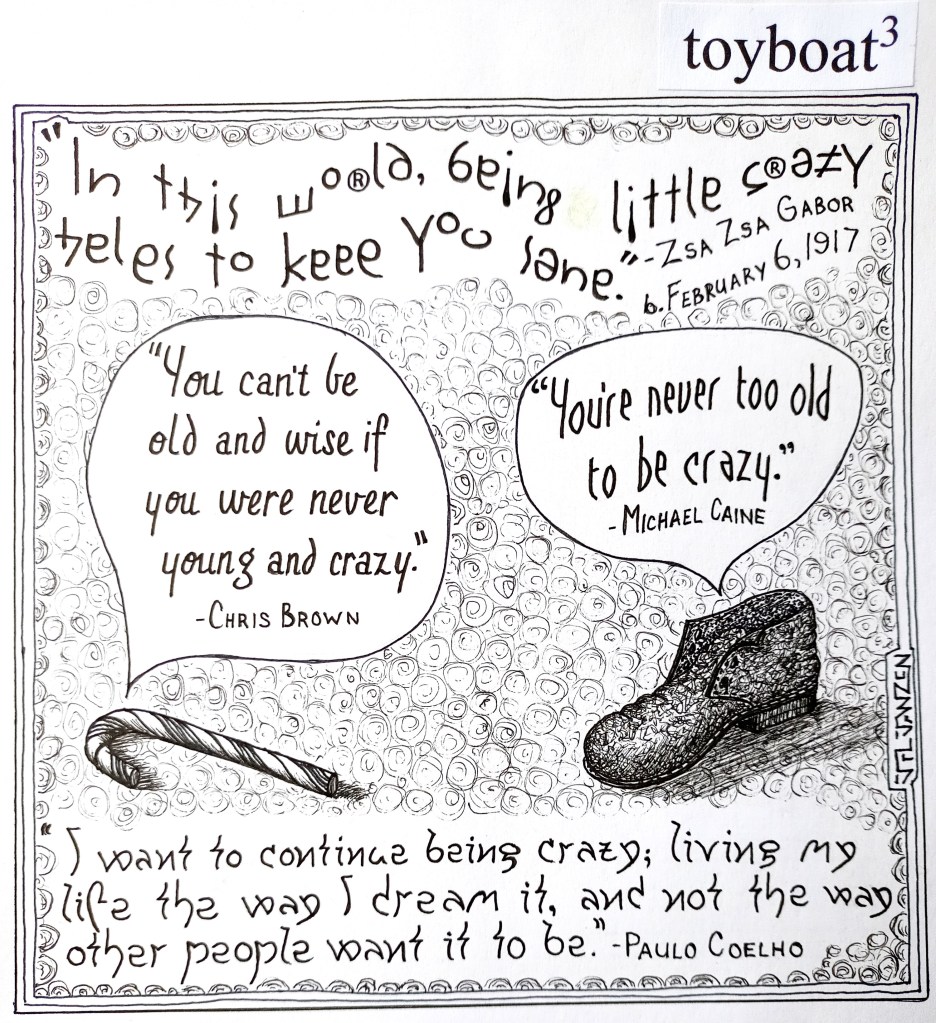 toyboat³
"In this wo®ld, being little c®azy
heles to keee you sane."-Zsa Zsa Gabor
b. February 6, 1917
"You can't be
old and wise if
you were never
young and crazy."
-Chris Brown
"You're never too old
to be crazy."
-Michael Caine
JPL JANZEN
"I want to continue being crazy; living my
life the way I dream it, and not the way
other people want it to be."-Paulo Coelho